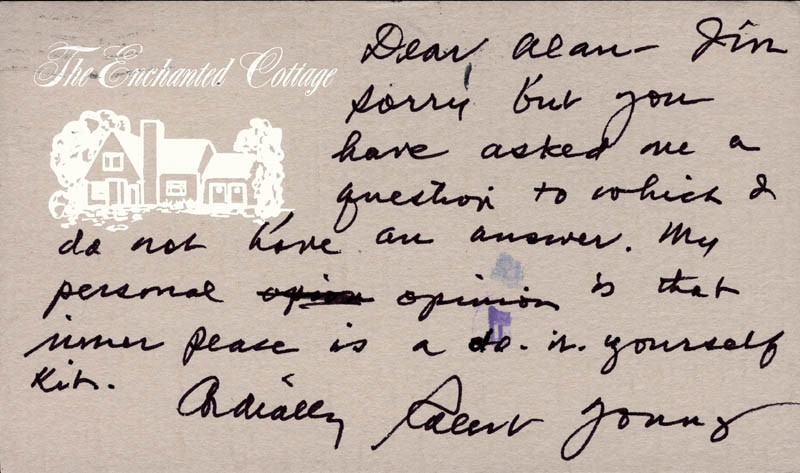 The Enchanted Cottage
Dear Alan - I'm
sorry but you
have asked me a
question to which I
do not have an answer. My
personal opinion is that
inner pease is a do. it. yourself
kit.
Cordially Robert Young